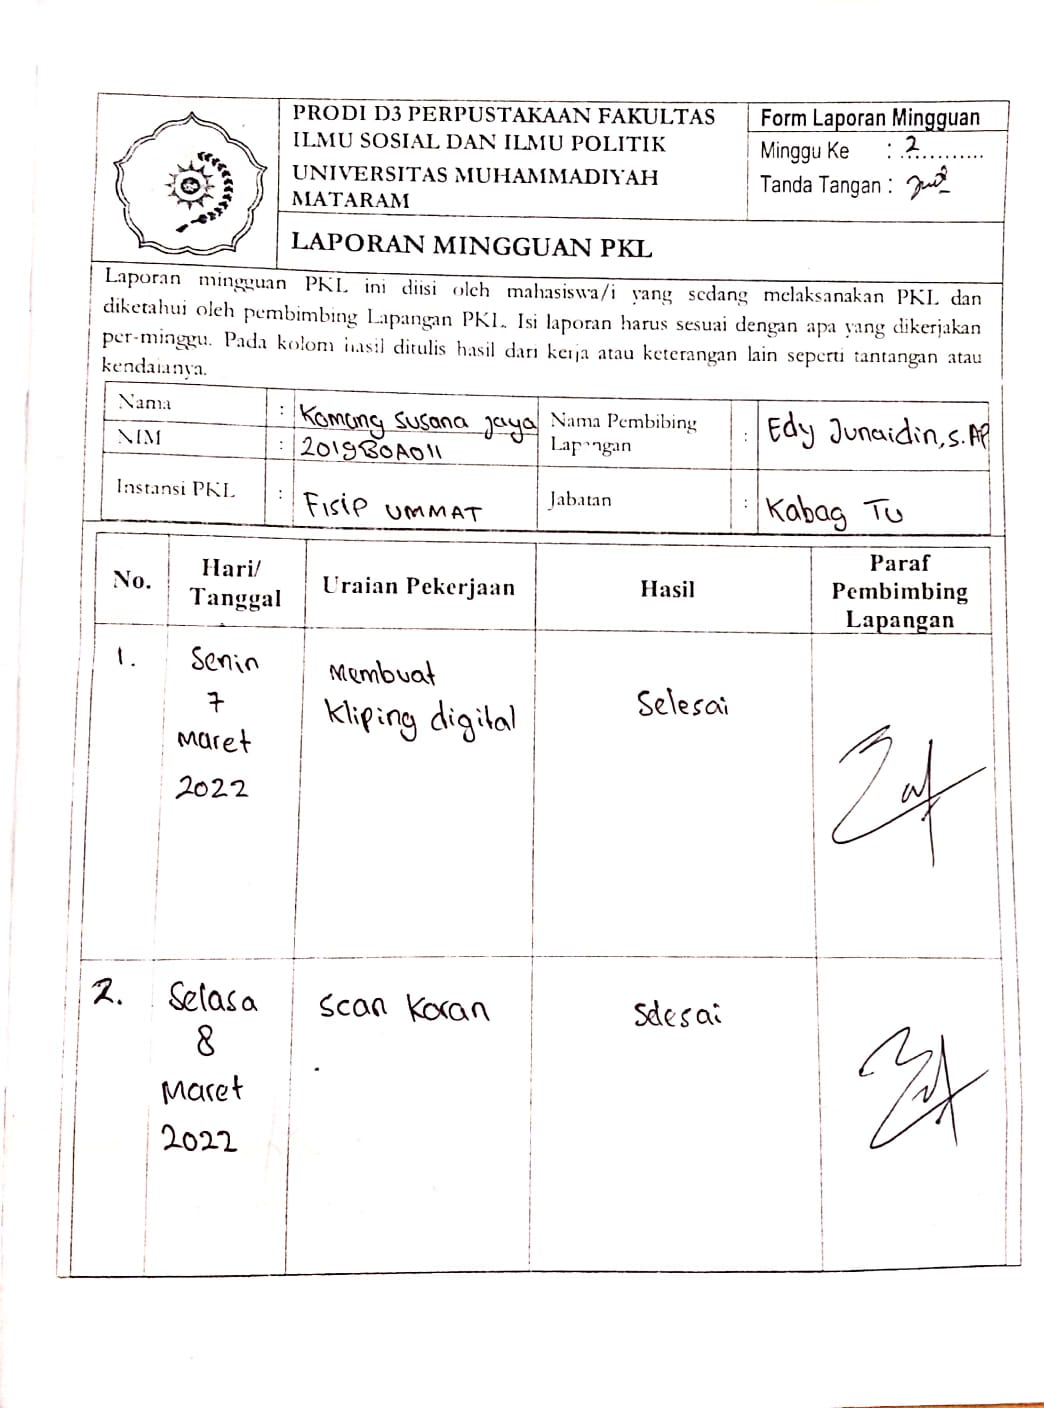 PRODI D3 PERPUSTAKAAN FAKULTAS
ILMU SOSIAL DAN ILMU POLITIK
UNIVERSITAS MUHAMMADIYAH
MATARAM
LAPORAN MINGGUAN PKL
Form Laporan Mingguan
Minggu Ke : 2
Tanda Tangan :
Laporan mingguan PKL ini diisi oleh mahasiswa/i yang sedang melaksanakan PKL dan
diketahui oleh pembimbing Lapangan PKL. Isi laporan harus sesuai dengan apa yang dikerjakan
per-minggu. Pada kolom hasil ditulis hasil dari kerja atau keterangan lain seperti tantangan atau
kendalanya.
Nama : Komang Susana Jaya
NIM : 2019B0A011
Instansi PKL : Fisip UMMAT
Nama Pembibing
Lapangan : Edy Junaidin, S.AP
Jabatan : Kabag TU
No.
Hari/
Tanggal
Uraian Pekerjaan
Hasil
Paraf
Pembimbing
Lapangan
1.
Senin
7
Maret
2022
Membuat
Kliping digital
Selesai
2.
Selasa
8
Maret
2022
Scan Koran
Selesai